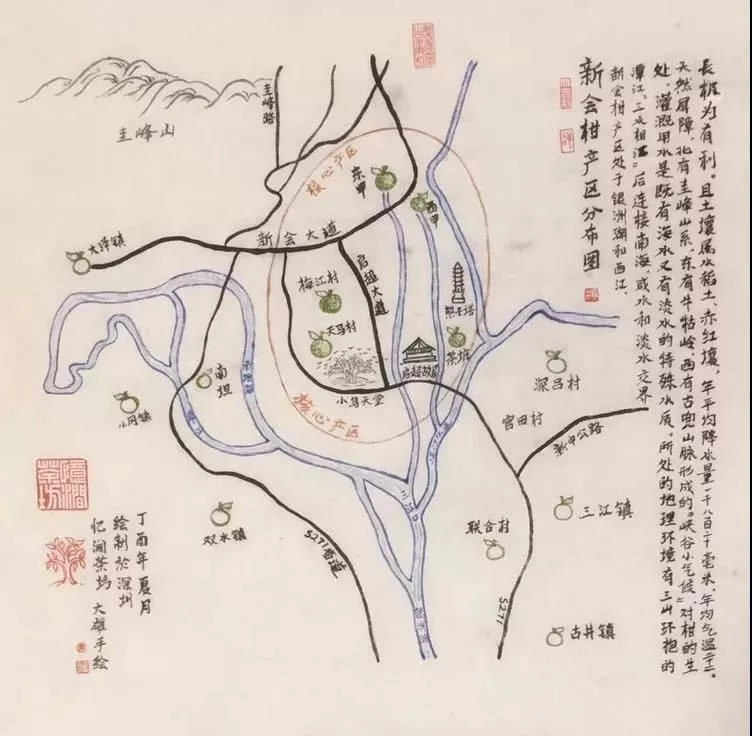 新会柑产区分布图
新会柑产区处于银洲湖和西江、
潭江,三水相汇,后连接南海,咸水和淡水交界
处,灌溉用水是既有海水又有淡水的特殊水质。所处的地理环境有三山环抱的
天然屏障,北有圭峰山系,东有牛牯岭,西有古兜山脉形成的“峡谷小气候”,对柑的生
長极为有利。且土壤属水稻土、赤红壤,年平均降水量一千八百十毫米,年均气温二十二。
圭峰山
圭峰路
核心产区
东甲
西甲
大泽镇
新会大道
启超大道
梅江村
天马村
小鸟天堂
启超故居
茶坑
核心产区
南坦
小冈镇
深吕村
官田村
新中公路
双水镇
S271省道
联合村
三江镇
S271
古井镇
忆涧茶坊
丁酉年夏月
绘制於深圳
忆涧茶坞 大雄手绘